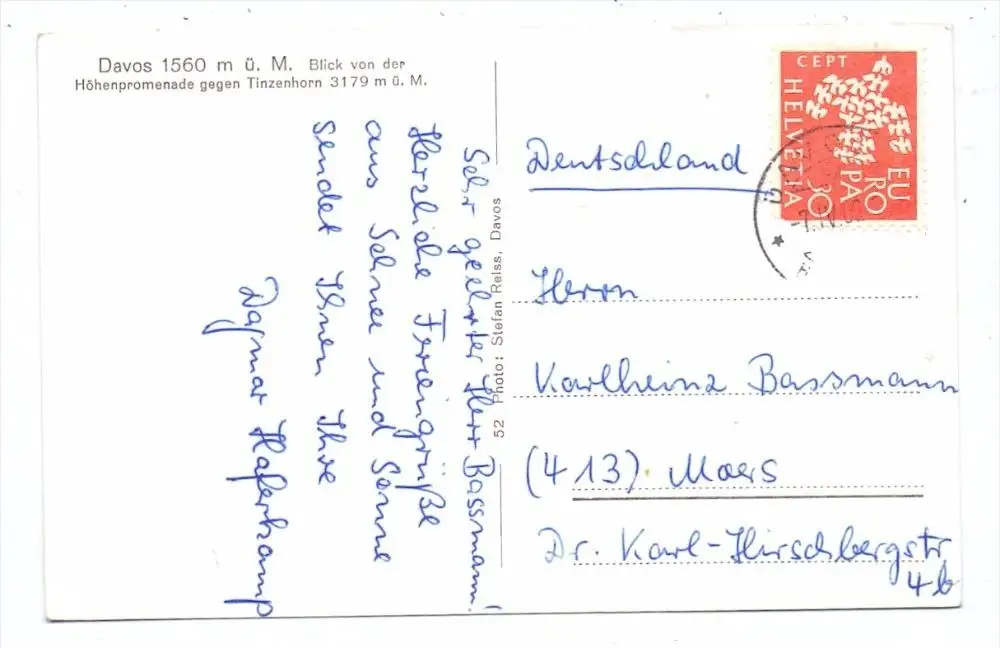 Davos 1560 m ü. M. Blick von der
Höhenpromenade gegen Tinzenhorn 3179 m ü. M.
Sehr geehrter Herr Bassmann!
Herzliche Feriengrüße
aus Schnee und Sonne
sendet Ihnen Ihre
Dagmar Haferkamp
52 Photo: Stefan Reiss, Davos
CEPT
HELVETIA
EU
RO
PA
30
Deutschland
Herrn
Karlheinz Bassmann
(413) Moers
Dr. Karl-Hirschbergstr
4b